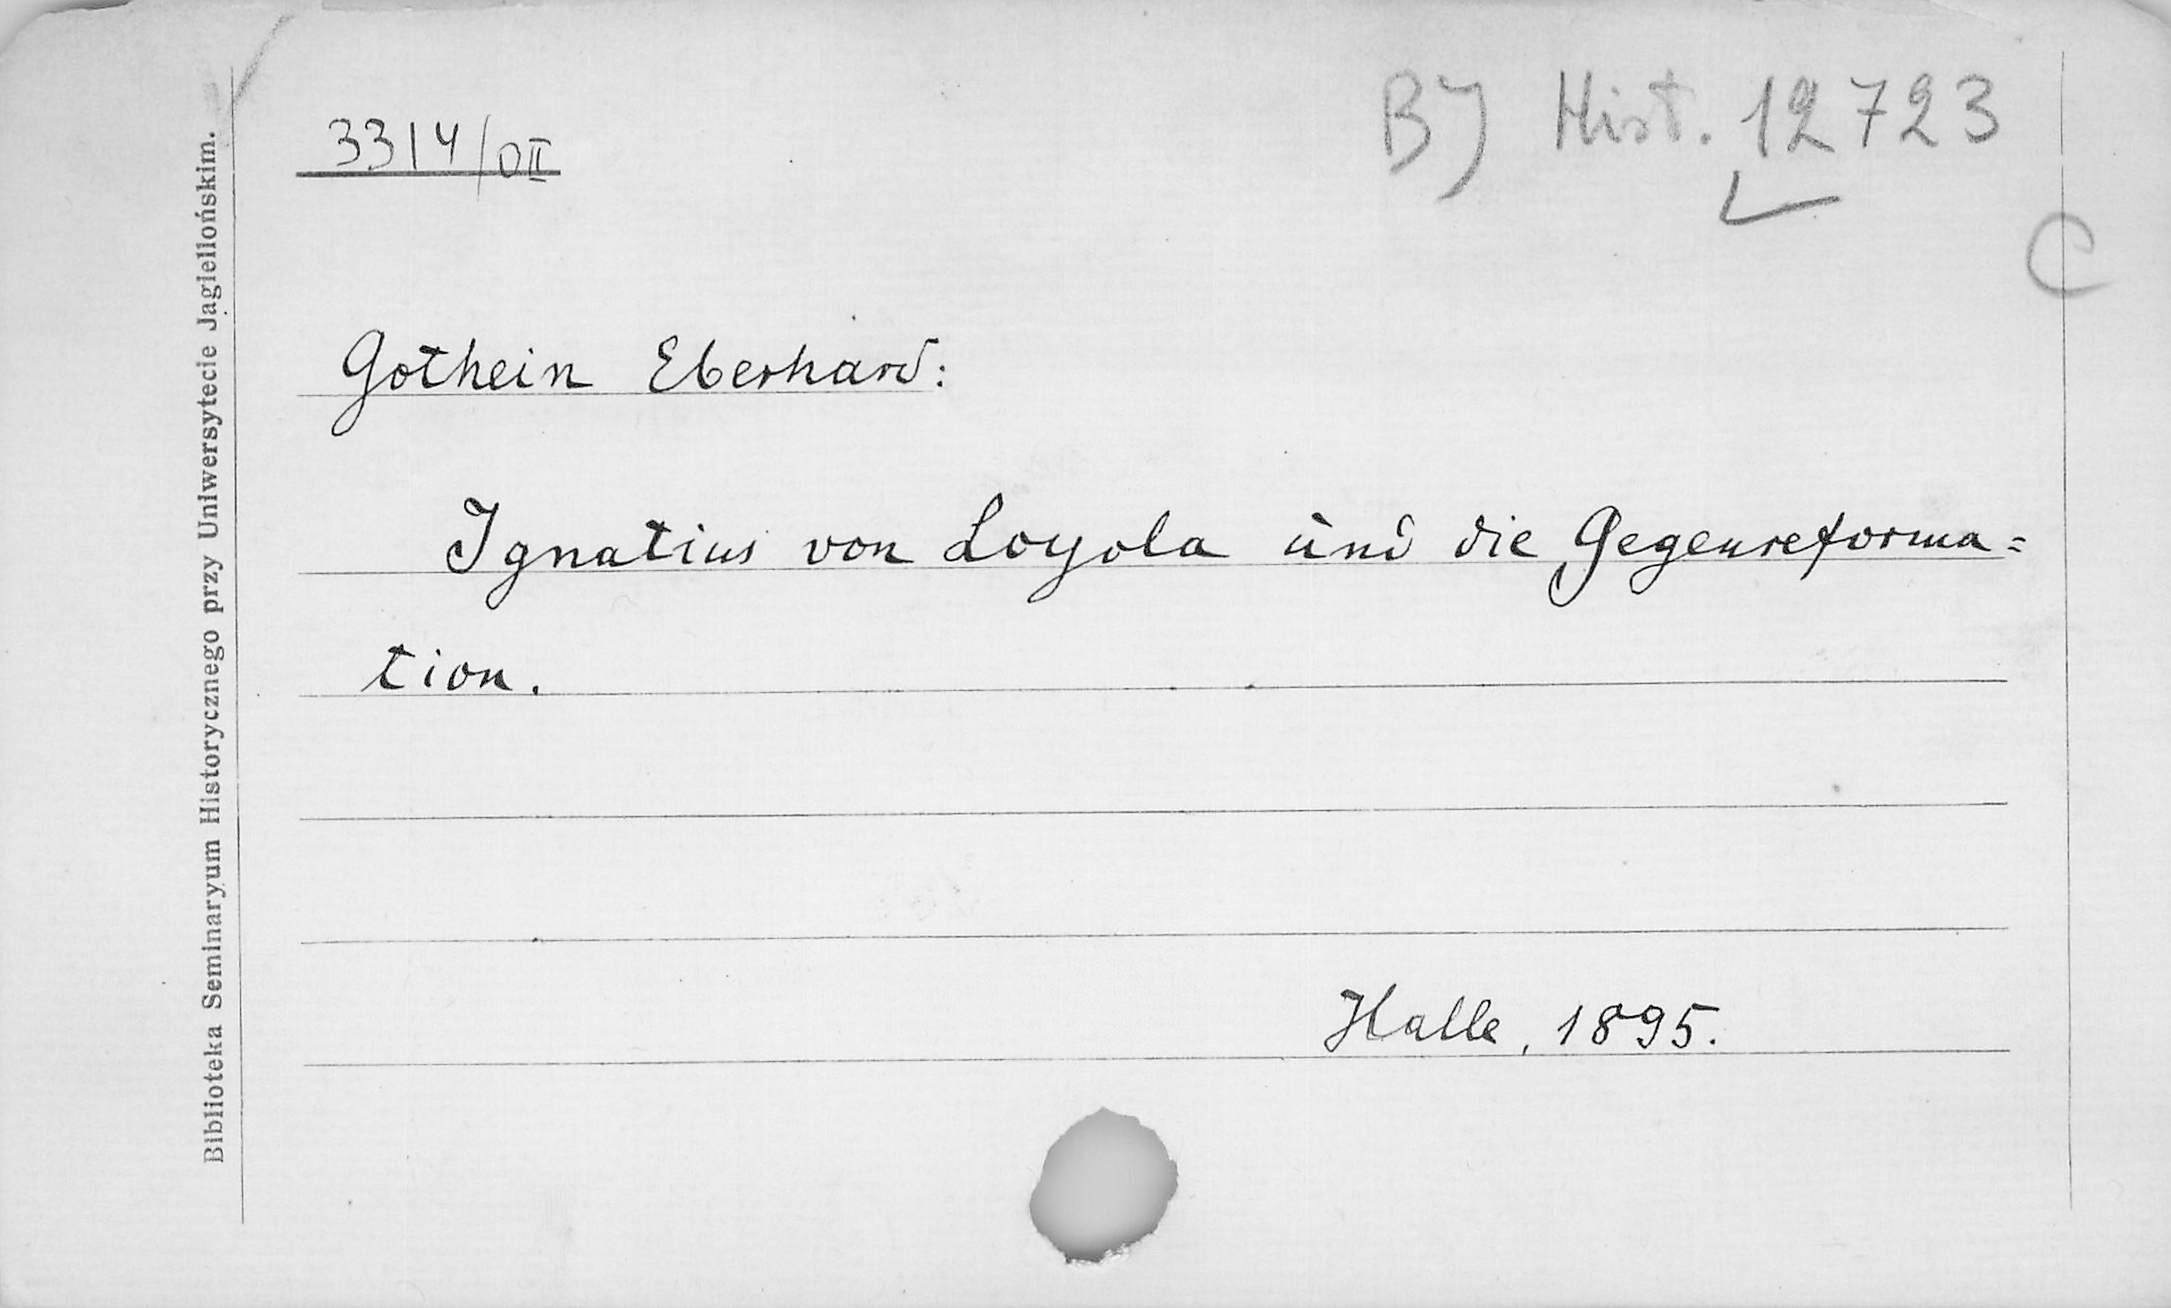 3314/DII
BJ Hist. 12723
C
Gothein Eberhard:
Ignatius von Loyola und die Gegenreforma=
tion.
Halle, 1895.
Biblioteka Seminaryum Historycznego przy Uniwersytecie Jagiellońskim.